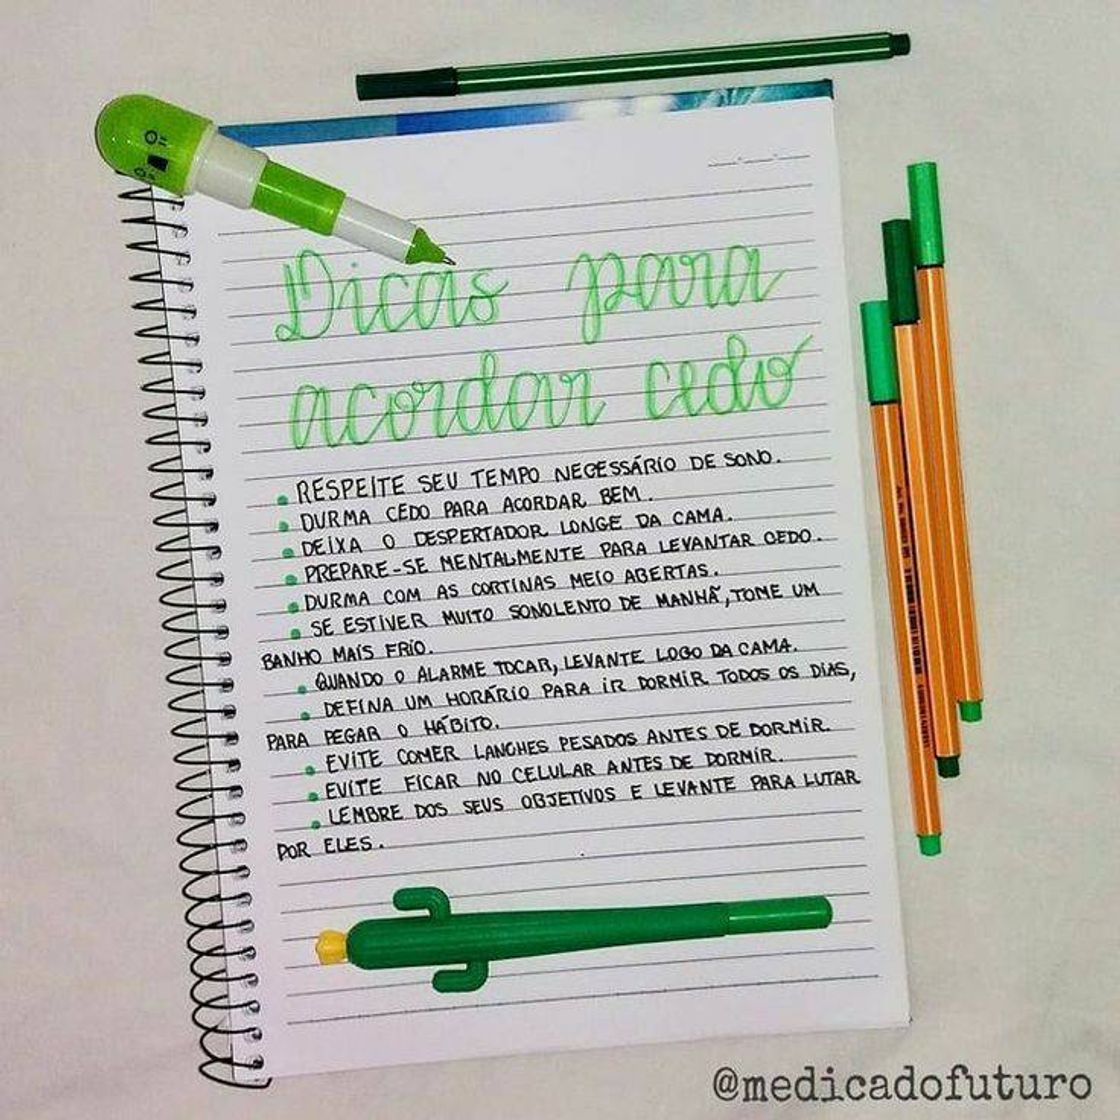 Dicas para
acordar cedo
• RESPEITE SEU TEMPO NECESSÁRIO DE SONO.
• DURMA CEDO PARA ACORDAR BEM.
• DEIXA O DESPERTADOR LONGE DA CAMA.
• PREPARE-SE MENTALMENTE PARA LEVANTAR CEDO.
• DURMA COM AS CORTINAS MEIO ABERTAS.
• SE ESTIVER MUITO SONOLENTO DE MANHÃ, TOME UM
BANHO MAIS FRIO.
• QUANDO O ALARME TOCAR, LEVANTE LOGO DA CAMA.
• DEFINA UM HORÁRIO PARA IR DORMIR TODOS OS DIAS,
PARA PEGAR O HÁBITO.
• EVITE COMER LANCHES PESADOS ANTES DE DORMIR.
• EVITE FICAR NO CELULAR ANTES DE DORMIR.
• LEMBRE DOS SEUS OBJETIVOS E LEVANTE PARA LUTAR
POR ELES.
@medicadofuturo